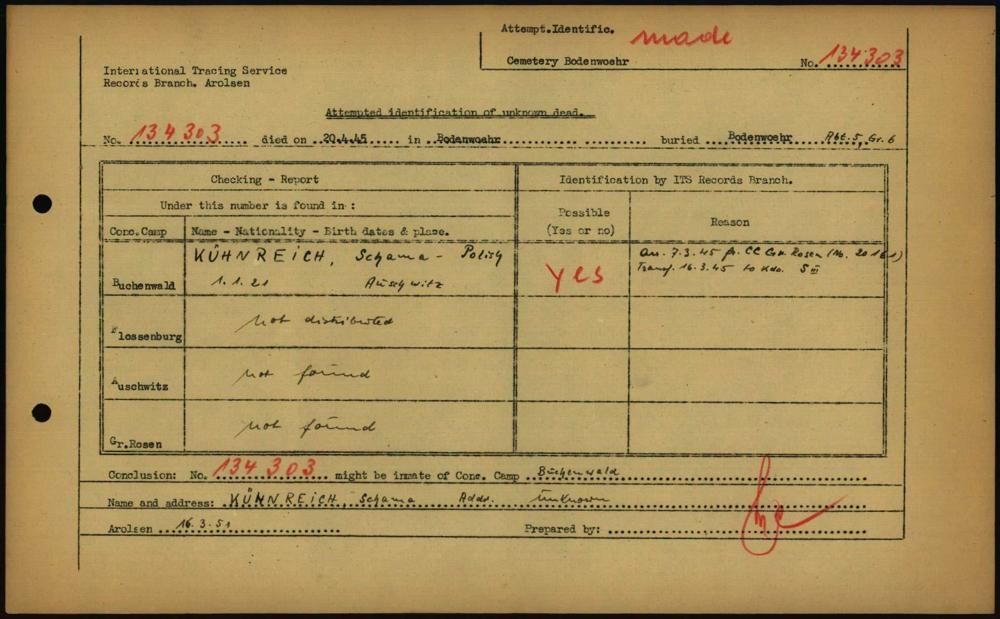 Attempt.Identific. made
Cemetery Bodenwoehr No. 134303
International Tracing Service
Records Branch. Arolsen
Attempted identification of unknown dead.
No. 134303 died on 20.4.45 in Bodenwoehr buried Bodenwoehr Abt. 5, Gr. 6
Checking - Report
Identification by ITS Records Branch.
Under this number is found in :
Possible
(Yes or no)
Reason
Conc.Camp
Name - Nationality - Birth dates & place.
Buchenwald
KÜHNREICH, Schama - Polish
1.1.21 Auschwitz
Yes
Arr. 7.3.45 fr. CC Gr. Rosen (No. 20161)
Transf. 16.3.45 to Kdo. S III
Flossenburg
not distributed
Auschwitz
not found
Gr.Rosen
not found
Conclusion: No. 134303 might be inmate of Conc. Camp Buchenwald
Name and address: KÜHNREICH, Schama Addr. unknown
Arolsen 16.3.51 Prepared by: